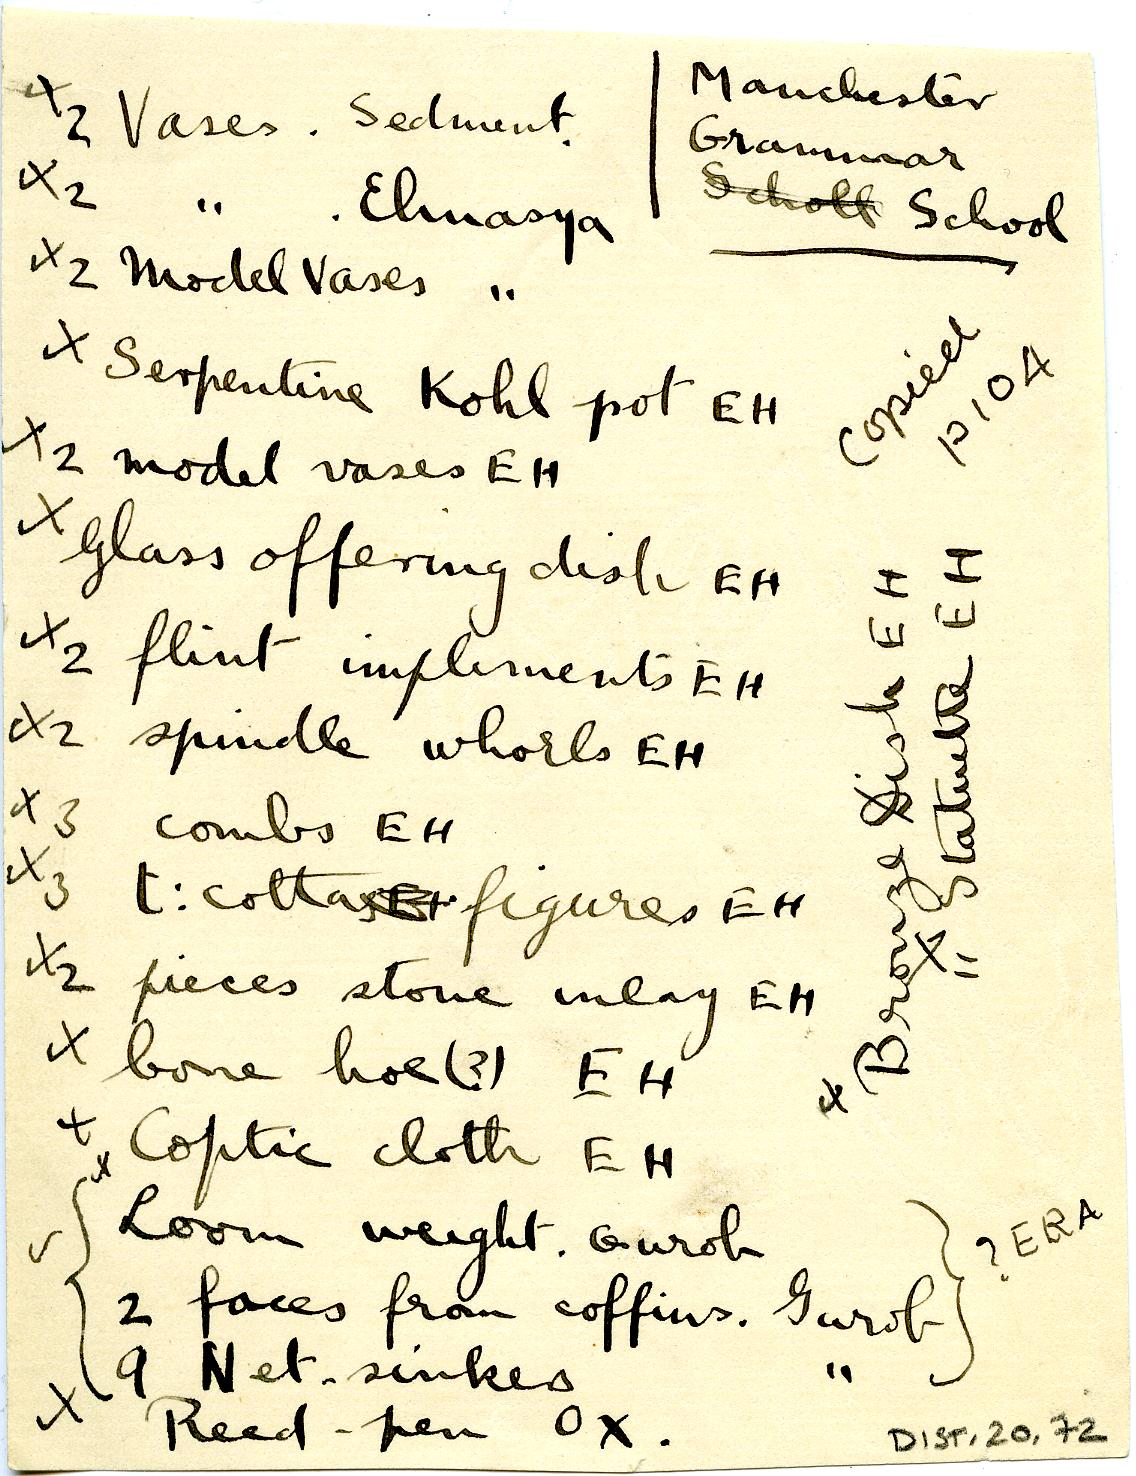 Manchester
Grammar
School
x 2 Vases. Sedment.
x 2 " . Ehnasya
x 2 Model Vases "
x Serpentine Kohl pot EH
x 2 model vases EH
x Glass offering dish EH
x 2 flint implements EH
x 2 spindle whorls EH
x 3 combs EH
x 3 t: cottas figures EH
x 2 pieces stone inlay EH
x bone hoe(?) EH
x Coptic cloth EH
x Loom weight. Gurob
2 faces from coffins. Gurob
9 Net-sinkers "
? ERA
x Reed-pen OX.
copied
p 104
x Bronze dish EH
x " statuette EH
DIST. 20, 72